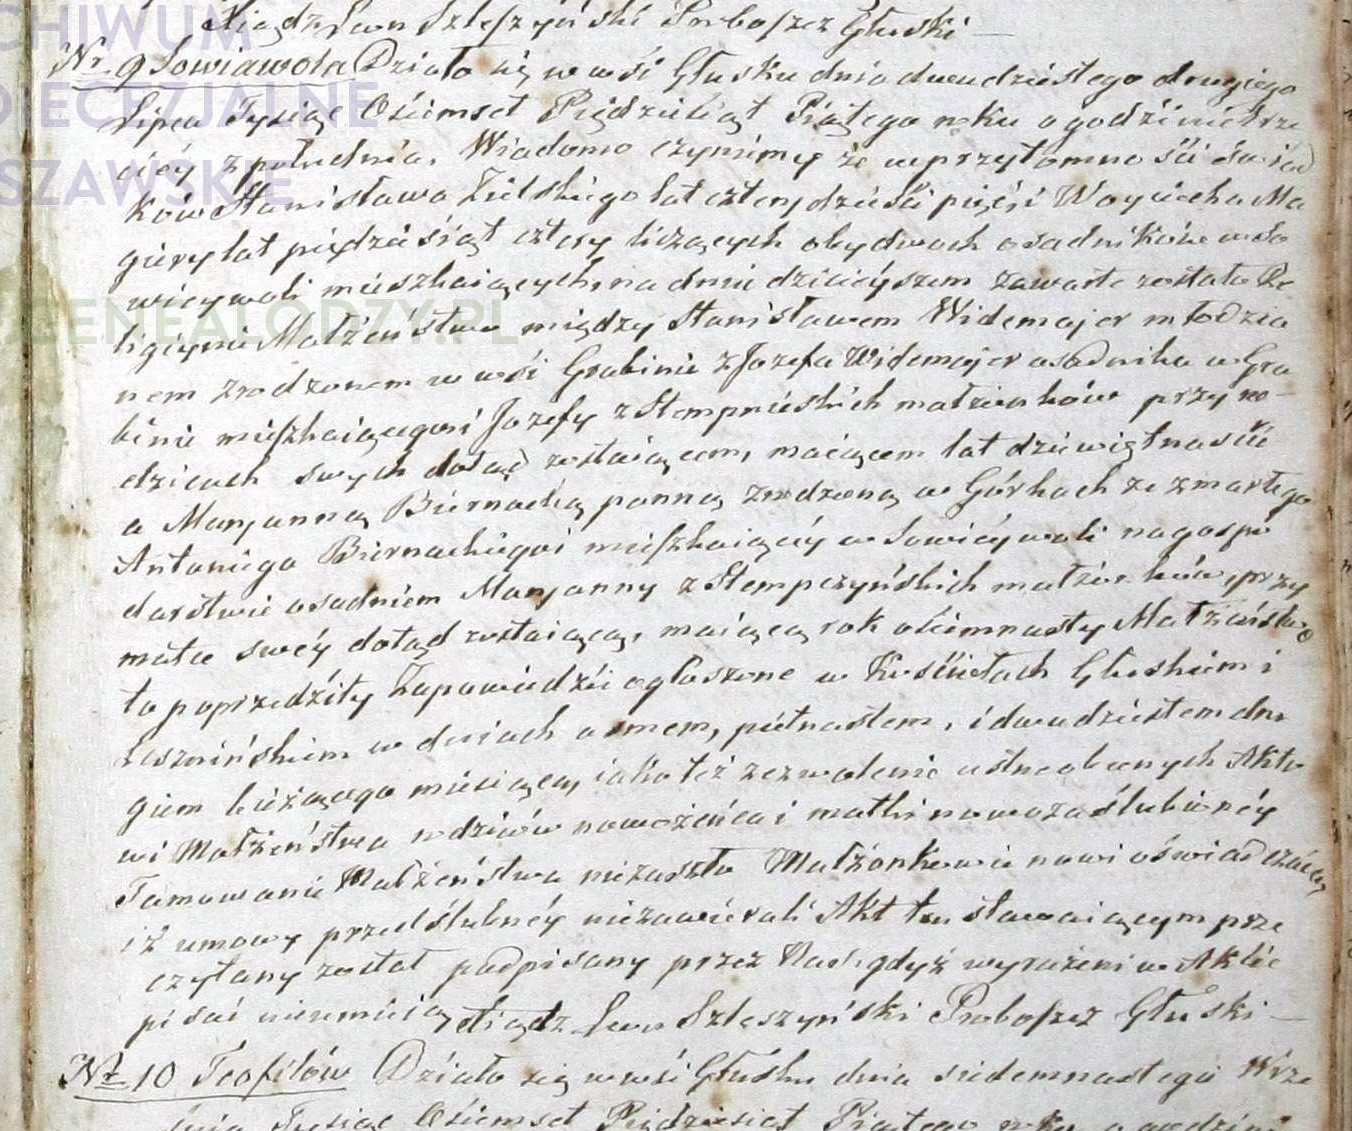 Xiądz Jan Szleszyński Proboszcz Głuski
Nr 9 Sowiawola Działo się w wsi Głusku dnia dwudziestego drugiego
Lipca Tysiąc Ośiemset Pięździesiąt Piątego roku o godzinie trze
ciéy z południa, Wiadomo czynimy że w przytomności świad
ków Stanisława Zielskiego lat czterydzieści pięć i Woyciecha Ma
giery lat pięździesiąt cztery liczących obydwoch osadników w So
wieywoli mieszkaiących, na dniu dzisieyszem zawarte zostało Re
ligiyne Małżeństwo między Stanisławem Widemajer młodzia
nem zrodzonem w wśi Grabinie z Jozefa Widemajer osadnika w Gra
binie mieszkaiącego i Jozefy z Stempnieskich małżonków przy ro-
dzicach swych dotąd zostaiącem, maiącem lat dziewiętnaście
a Maryanną Biernacką panną zrodzoną w Górkach ze zmarłego
Antoniego Biernackiego i mieszkaiącéy w Sowiéywoli na gospo
darstwie osadniem Maryanny z Stempczyńskich małżonków, przy
matce swéy dotąd zostaiącą, maiącą rok ośiemnasty Małżeństwo
to poprzedziły Zapowiedzi ogłoszone w Kościołach Głuskim i
Leszníńskiem w dniach osmem, piętnastem, i dwudziestem dru
giem bieżącego miesiąca, iako też zezwolenie ustne obecnych Akto
wi Małżeństwa rodziców nowożeńca i matki nowozaślubionéy
Tamowanie Małżeństwa niezaszło Małżonkowie nowi oświadczaią,
iż umowy przedślubnéy niezawierali Akt ten stawaiącym prze
czytany został podpisany przez Nas gdyż wyrażeni w Akcie
pisać nieumieią, Xiądz Jan Szleszyński Proboszcz Głuski
Nr 10 Teofilów Działo się w wsi Głusku dnia siedemnastego Wrze
śnia Tysiąc Ośiemset Pięździesiąt Piątego roku o godzinie
ARCHIWUM
DIECEZJALNE
WARSZAWSKIE
GENEALODZY.PL